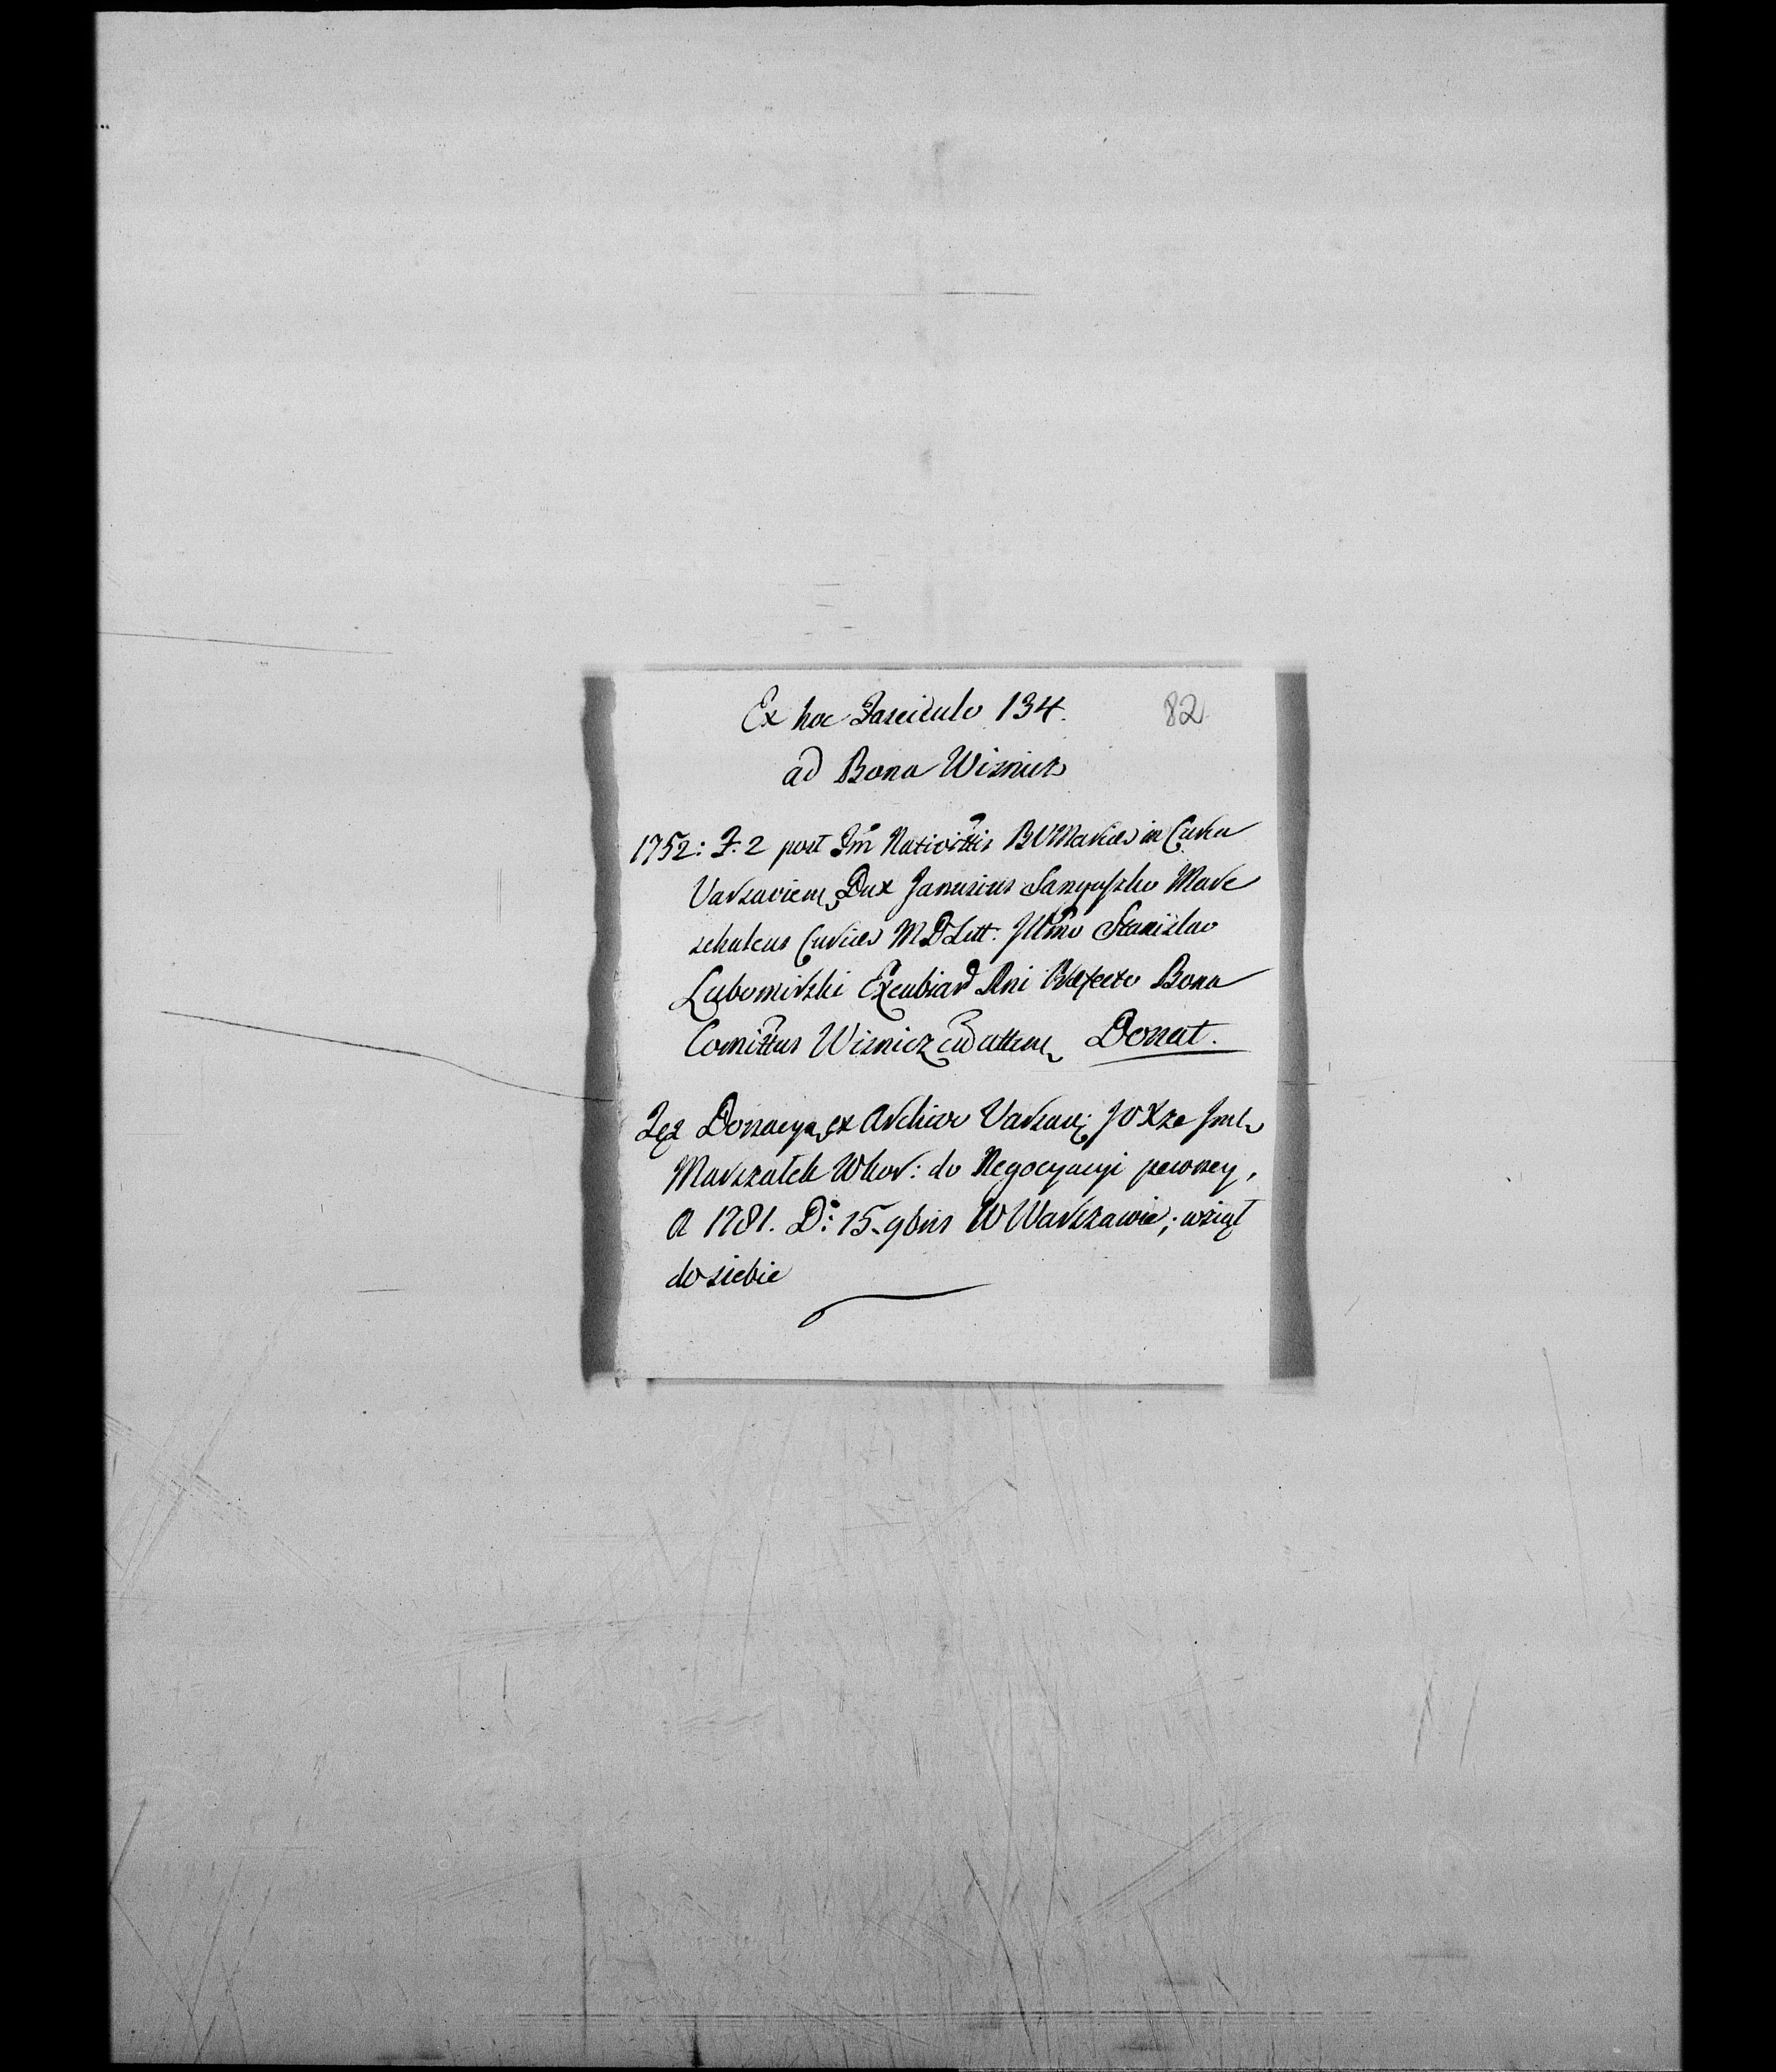 Ex hoc Fasciculo 134. 82
ad Bona Wisnicz
1752: F. 2 post Fm̃ Nativittis BVMariæ in Curia
Varsavien, Dux Janusius Sanguszko Mare
schalcus Curiæ MDLitt. Jllmo Stanislao
Lubomirski Excubiar Rni Præfecto Bona
Comittus Wisnicz cũ attin Donat.
Tęż Donacyą ex Archivo Varsav: JO Xże Jmć
Marszałek WKor: do Negocyacyi pewney,
A 1781. D: 15. 9bris W Warszawie; wziął
do siebie